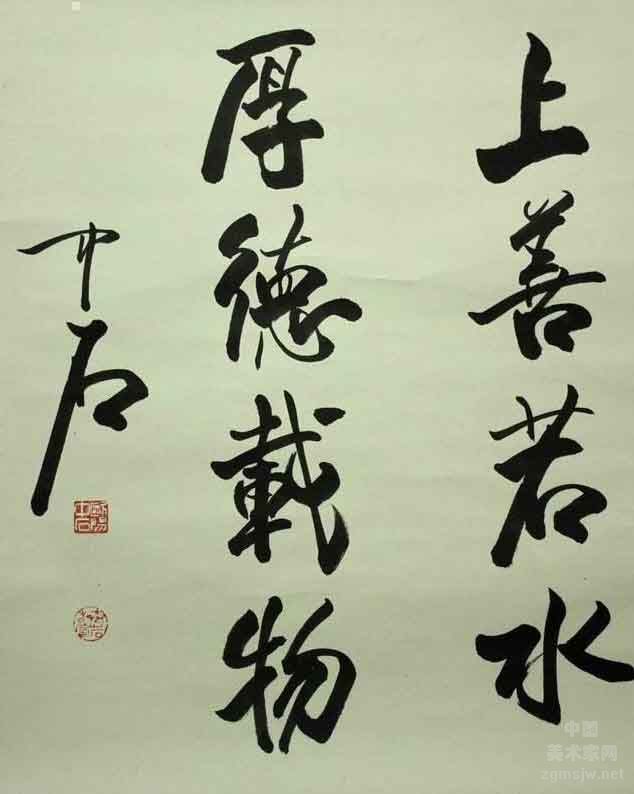 上善若水
厚德載物
中石
歐陽中石
中国
美术家网
zgmsjw.net